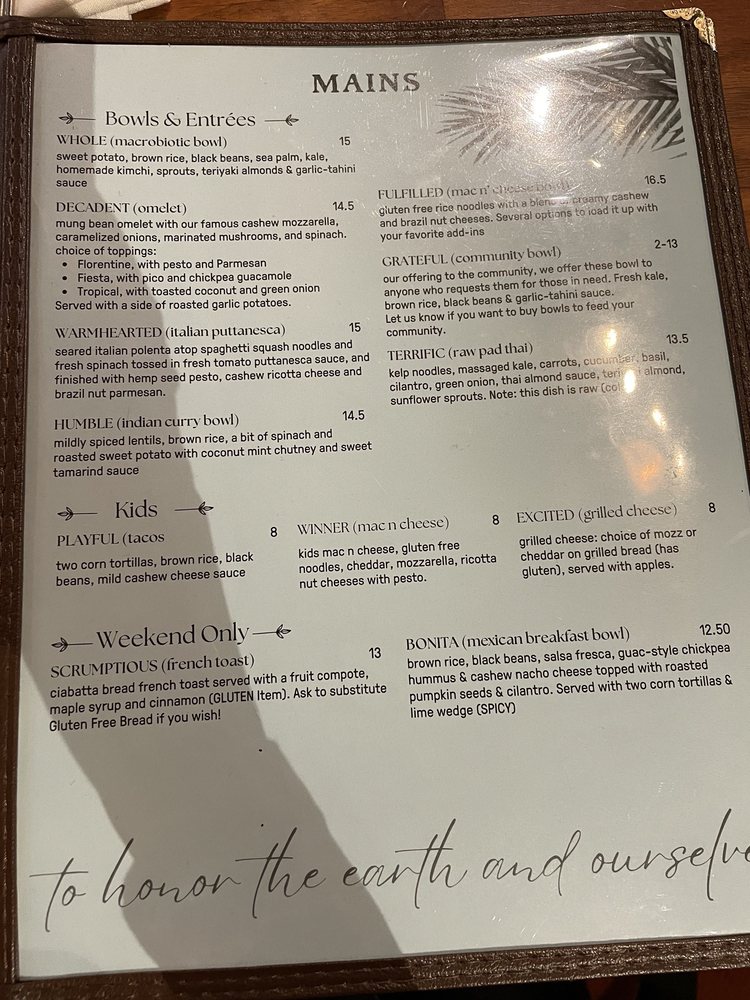 MAINS
Bowls & Entrées
WHOLE (macrobiotic bowl) 15
sweet potato, brown rice, black beans, sea palm, kale,
homemade kimchi, sprouts, teriyaki almonds & garlic-tahini
sauce
DECADENT (omelet) 14.5
mung bean omelet with our famous cashew mozzarella,
caramelized onions, marinated mushrooms, and spinach.
choice of toppings:
• Florentine, with pesto and Parmesan
• Fiesta, with pico and chickpea guacamole
• Tropical, with toasted coconut and green onion
Served with a side of roasted garlic potatoes.
WARMHEARTED (italian puttanesca) 15
seared italian polenta atop spaghetti squash noodles and
fresh spinach tossed in fresh tomato puttanesca sauce, and
finished with hemp seed pesto, cashew ricotta cheese and
brazil nut parmesan.
HUMBLE (indian curry bowl) 14.5
mildly spiced lentils, brown rice, a bit of spinach and
roasted sweet potato with coconut mint chutney and sweet
tamarind sauce
FULFILLED (mac n' cheese bowl) 16.5
gluten free rice noodles with a blend of creamy cashew
and brazil nut cheeses. Several options to load it up with
your favorite add-ins
GRATEFUL (community bowl) 2-13
our offering to the community, we offer these bowl to
anyone who requests them for those in need. Fresh kale,
brown rice, black beans & garlic-tahini sauce.
Let us know if you want to buy bowls to feed your
community.
TERRIFIC (raw pad thai) 13.5
kelp noodles, massaged kale, carrots, cucumber, basil,
cilantro, green onion, thai almond sauce, teriyaki almond,
sunflower sprouts. Note: this dish is raw
Kids
PLAYFUL (tacos 8
two corn tortillas, brown rice, black
beans, mild cashew cheese sauce
WINNER (mac n cheese) 8
kids mac n cheese, gluten free
noodles, cheddar, mozzarella, ricotta
nut cheeses with pesto.
EXCITED (grilled cheese) 8
grilled cheese: choice of mozz or
cheddar on grilled bread (has
gluten), served with apples.
Weekend Only
SCRUMPTIOUS (french toast) 13
ciabatta bread french toast served with a fruit compote,
maple syrup and cinnamon (GLUTEN Item). Ask to substitute
Gluten Free Bread if you wish!
BONITA (mexican breakfast bowl) 12.50
brown rice, black beans, salsa fresca, guac-style chickpea
hummus & cashew nacho cheese topped with roasted
pumpkin seeds & cilantro. Served with two corn tortillas &
lime wedge (SPICY)
to honor the earth and ourselve